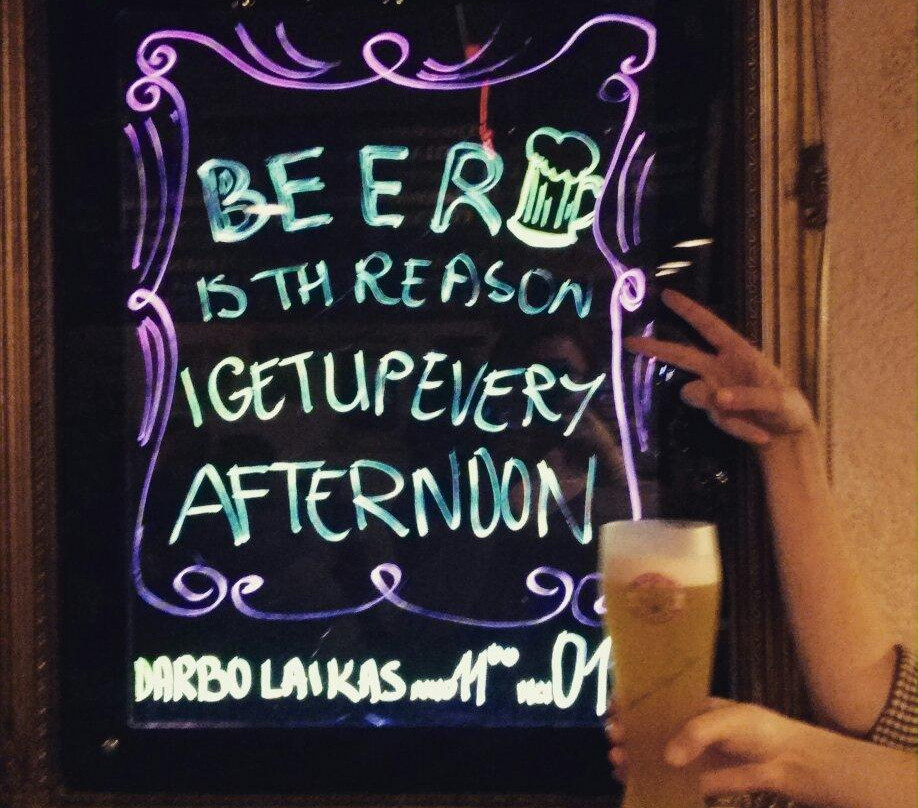 BEER
IS TH REASON
I GET UP EVERY
AFTERNOON
DARBO LAIKAS 11⁰⁰ 01